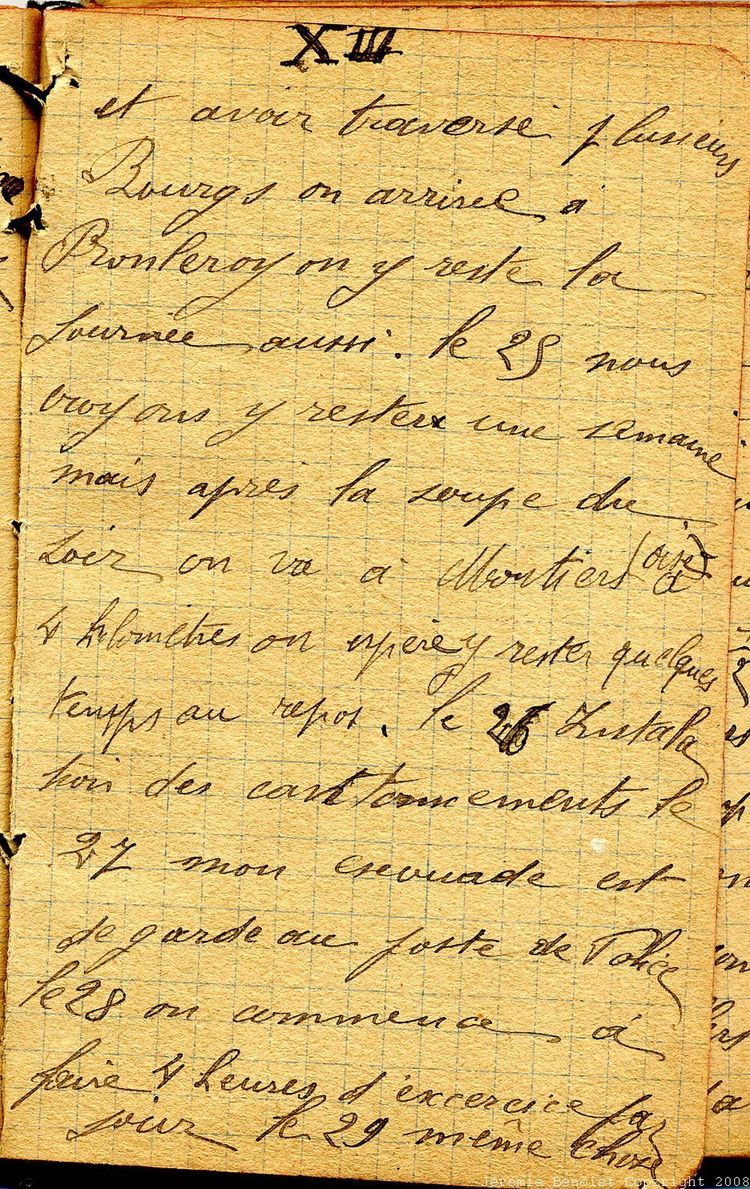 XIII
et avoir traversé plusieurs
Bourgs on arrive à
Pronleroy on y reste la
Journée aussi. le 25 nous
croyons y rester une semaine
mais après la soupe du
soir on va à Moutiers (oise) à
4 kilomètres on espère y rester quelques
temps au repos. le 26 Instala
tion des cantonnements le
27 mon escouade est
de garde au poste de Police
le 28 on commence à
faire 4 heures d'excercice par
jour le 29 même chose
Jeremie Benoist Copyright 2008